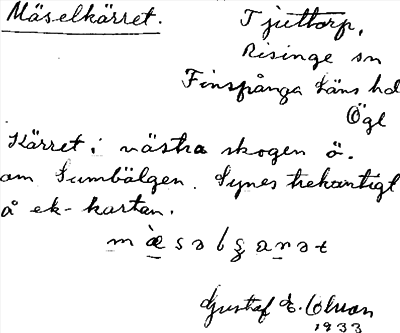 Mäselkärret.
Tjuttorp,
Risinge sn
Finspånga läns hd
Ögl
Kärret i västra skogen ö.
om Sumbälgen. Synes trekantigt
å ek-kartan.
Gustaf E. Olsson
1933